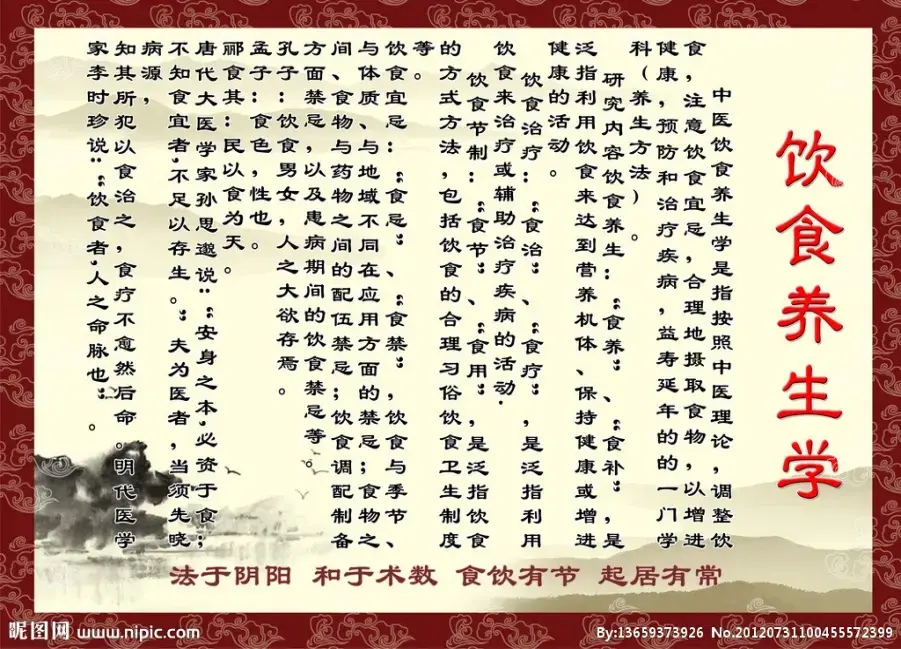 饮食养生学
中医饮食养生学是指按照中医理论，调整饮
食，注意饮食宜忌，合理地摄取食物，以增进
健康，预防和治疗疾病，益寿延年的的一门学
科（养生方法）。
研究内容饮食养生：“食养”、“食补”，是
泛指利用饮食来达到营养机体、保持健康或增进
健康的活动。
饮食治疗：“食治”、“食疗”，是泛指利用
饮食来治疗或辅助治疗疾病的活动.
饮食节制：“食节”、“食用”，是泛指饮食
的方式方法，包括饮食的、合理习俗饮食卫生制度
等。
饮食宜忌：“食忌”、“食禁”，饮食与季节、
与体质、与地域不同在应用方面的禁忌；食物之
间、食物与药物之间的配伍禁忌；饮食调配制备
方面禁忌，以及患病期间的饮食禁忌等。
孔子：饮食男女，人之大欲存焉。
孟子：食色，性也。
郦食其：民以食为天。
唐代大医学家孙思邈说：“安身之本，必资于食；
不知食宜者，不足以存生。”夫为医者，当须先晓
病源，
知其所犯以食治之，食疗不愈然后命。明代医学
家李时珍说：“饮食者，人之命脉也”。
法于阴阳 和于术数 食饮有节 起居有常
昵图网 www.nipic.com
By:13659373926 No.20120731100455572399